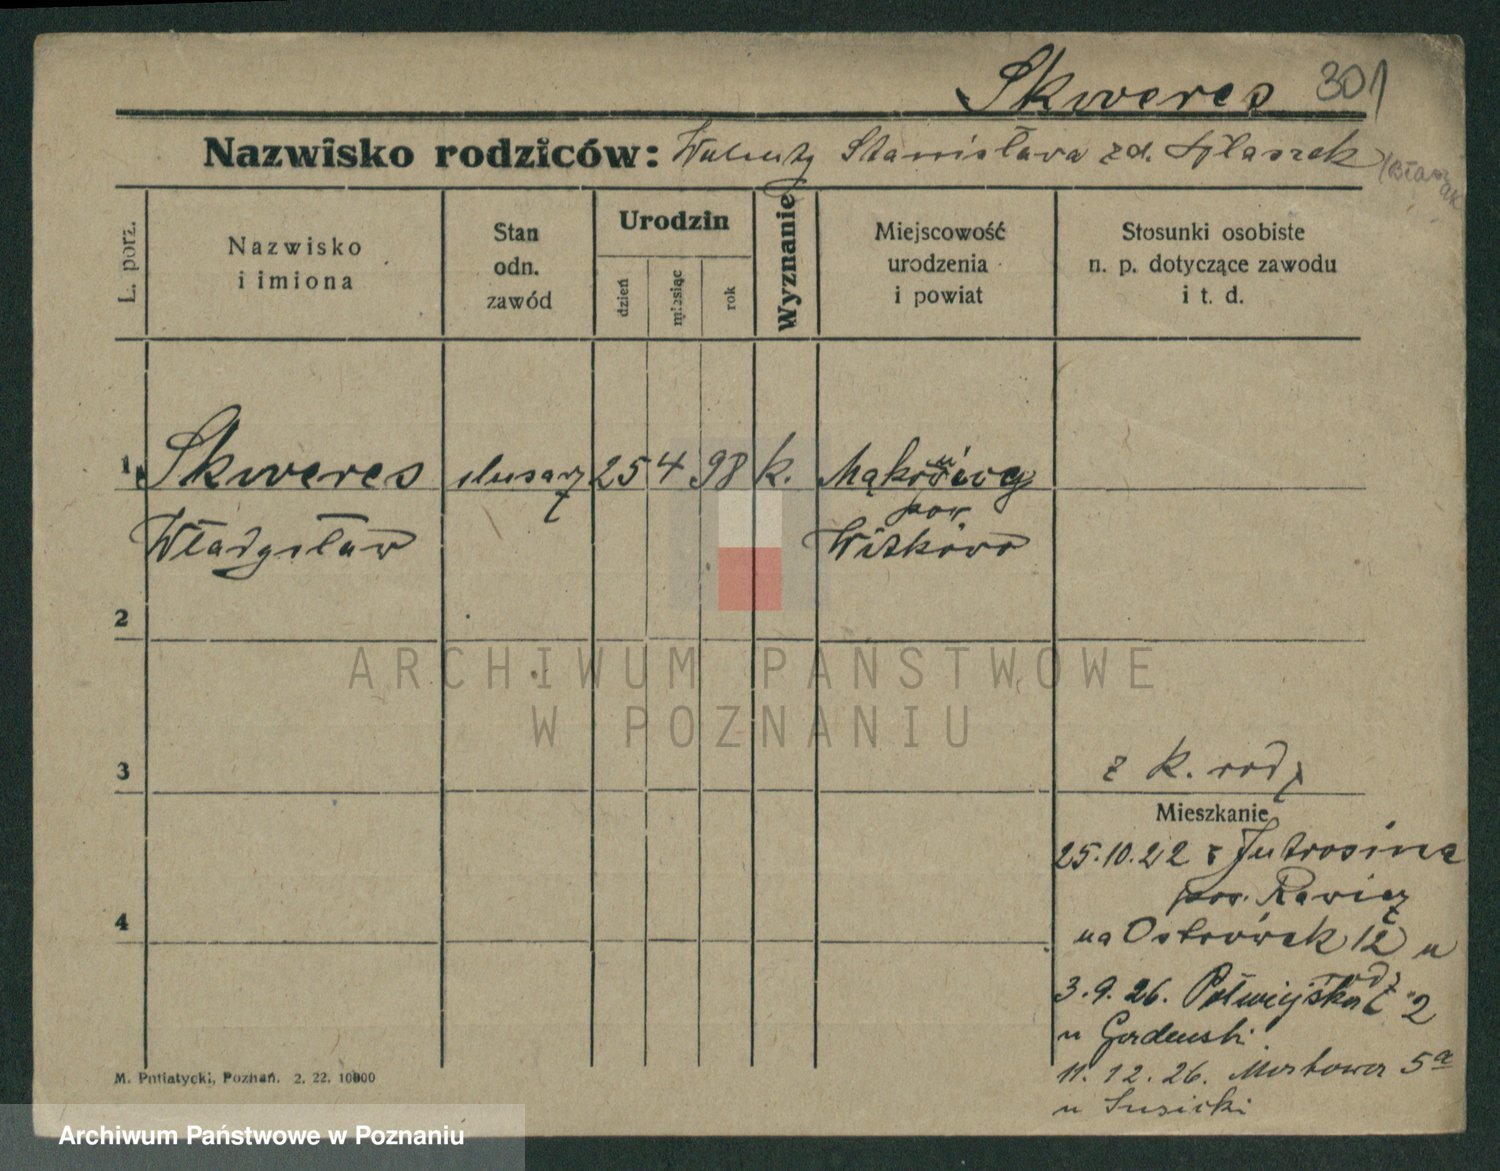 Skweres 301
Nazwisko rodziców: Walenty Stanisława zd.
L. porz.
Nazwisko
i imiona
Stan
odn.
zawód
Urodzin
dzień
miesiąc
rok
Wyznanie
Miejscowość
urodzenia
i powiat
Stosunki osobiste
n. p. dotyczące zawodu
i t. d.
1 Skweres ślusarz 25 4 98 k.
pow
Władysław Witkowo
2
ARCHIWUM PAŃSTWOWE
W POZNANIU
3
z k. rodz
Mieszkanie
25.10.22 z Jutrosina
pow. Rawicz
4
na Ostrówek 12 u
rodz
3.9.26. Półwiejska 2
u
11.12.26. 5a
u Susicki
M. Putiatycki, Poznań. 2. 22. 10000
Archiwum Państwowe w Poznaniu